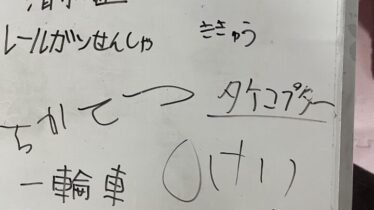 レールガンせんしゃ
ききゅう
ちかてつ
タケコプター
一輪車